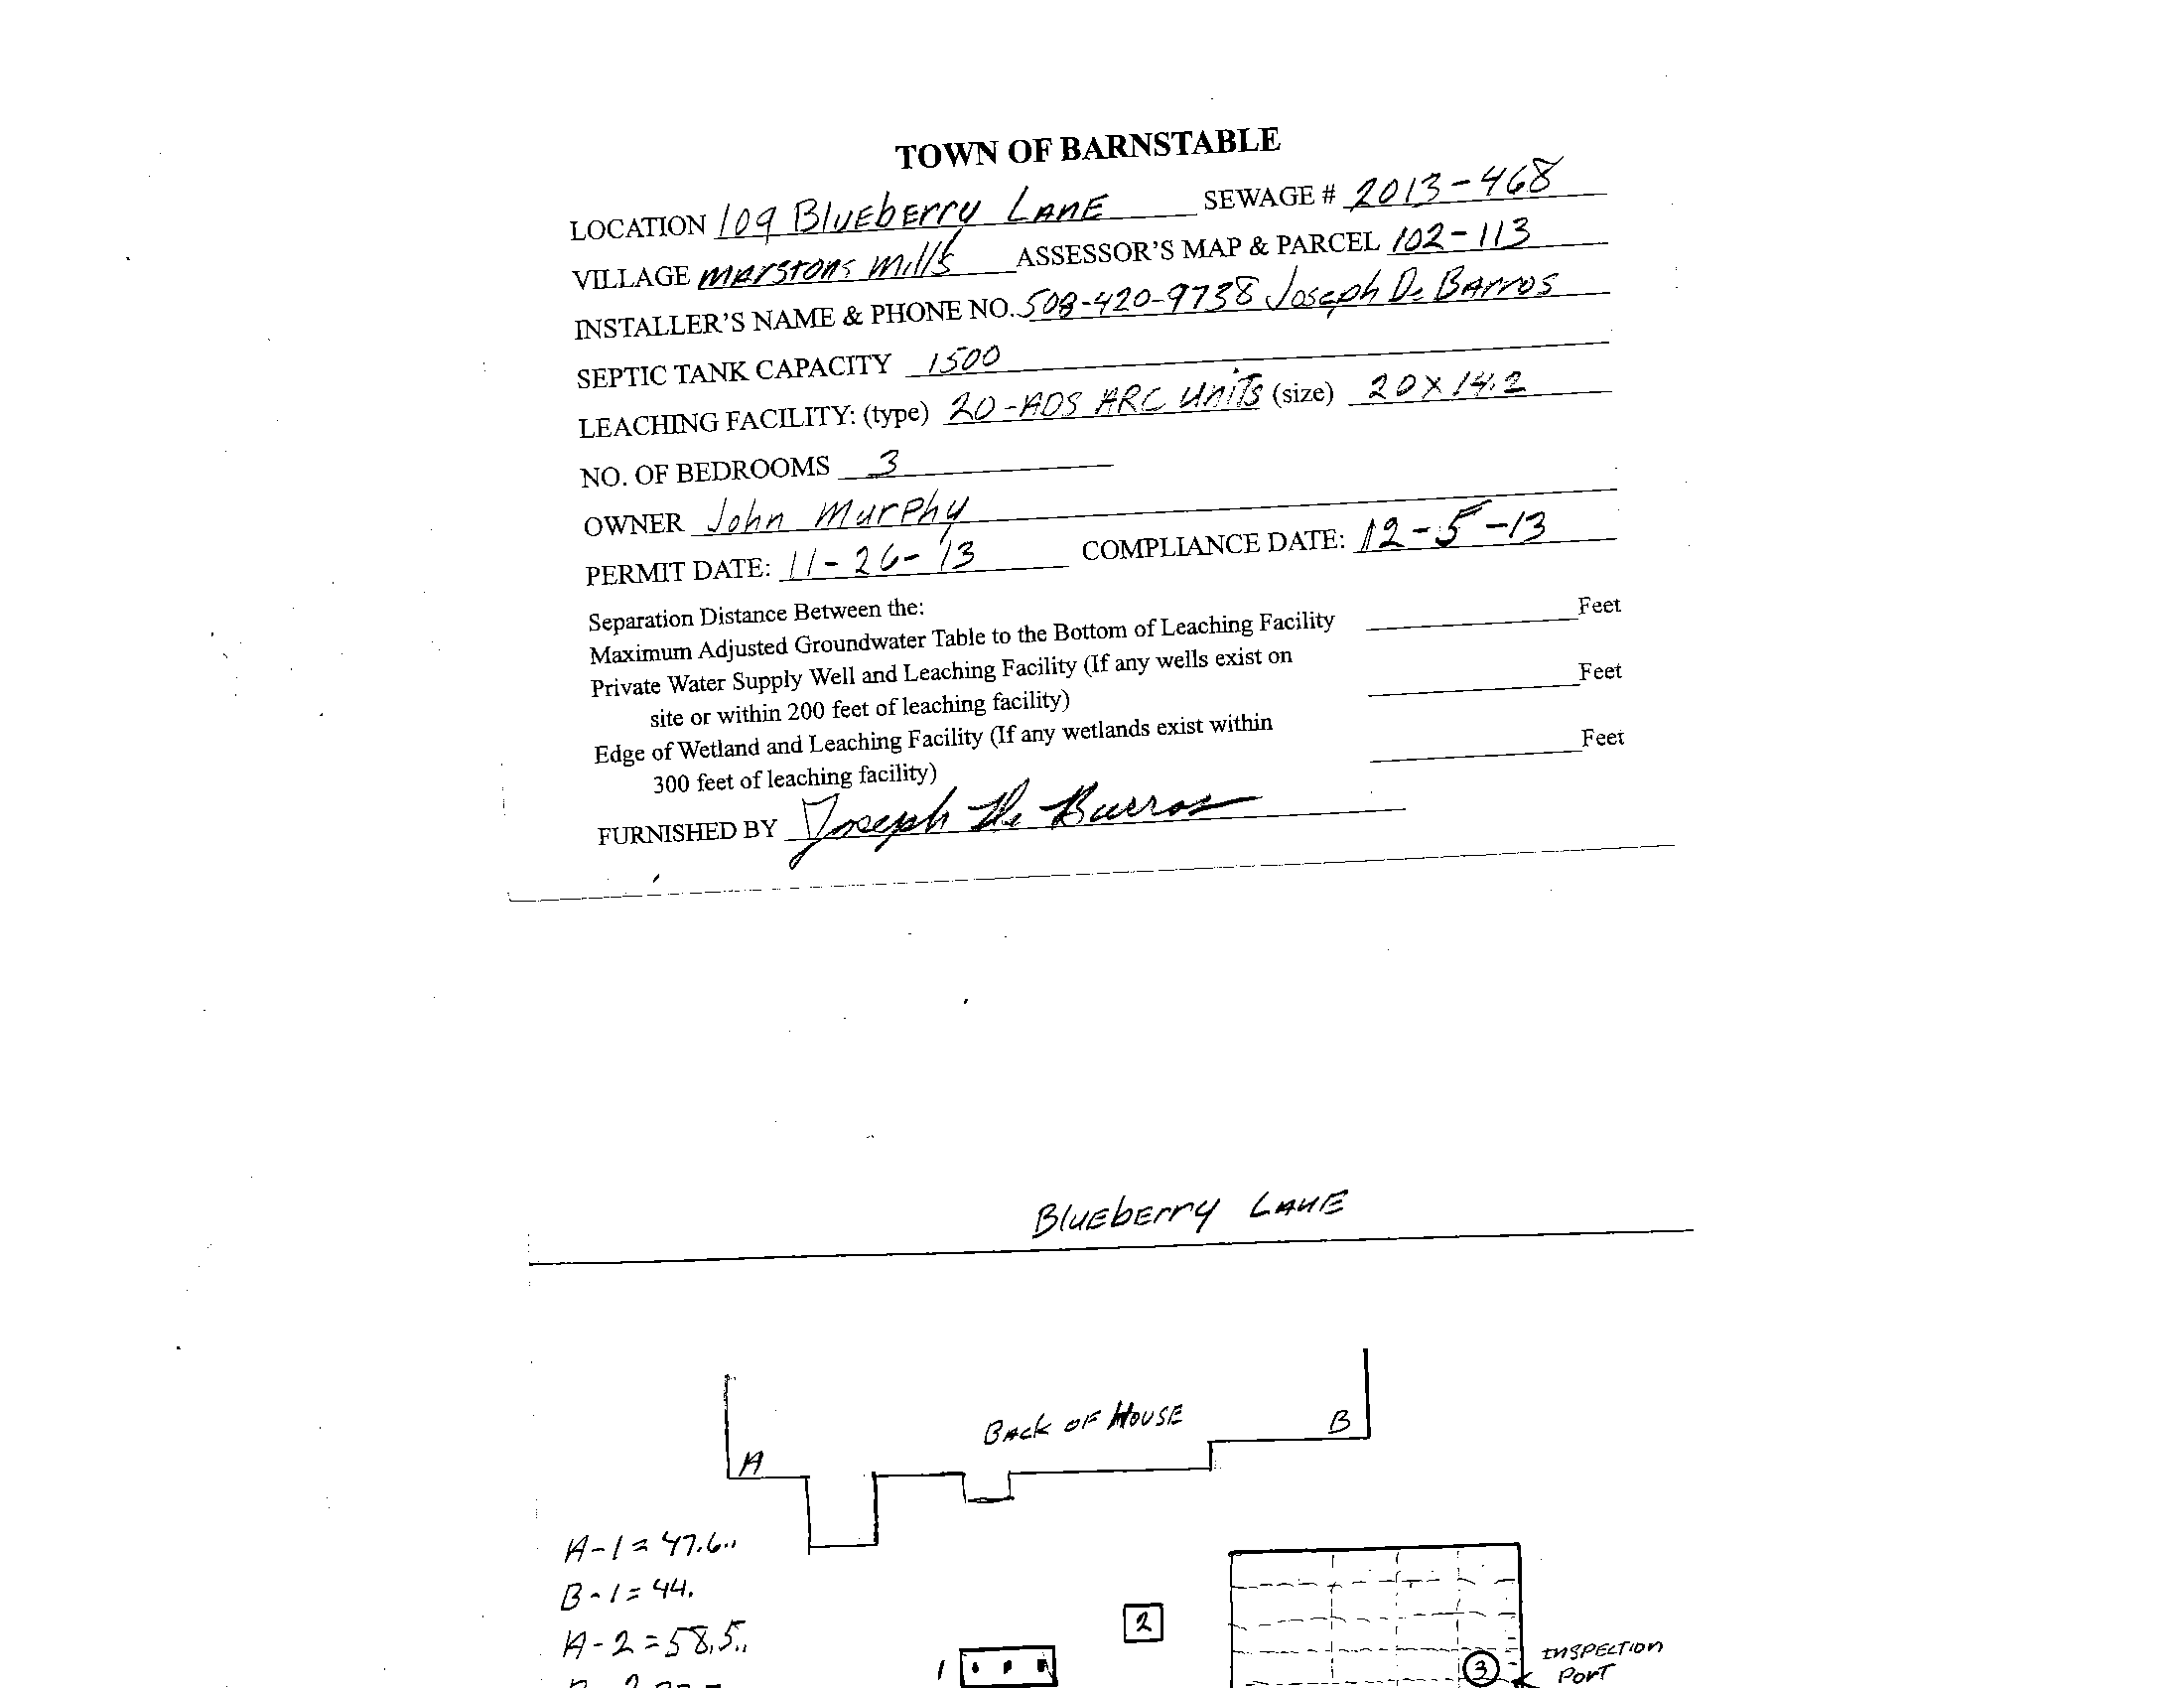 TOWN OF BARNSTABLE
LOCATION 109 Blueberry Lane SEWAGE # 2013-468
VILLAGE Marstons Mills ASSESSOR'S MAP & PARCEL 102-113
INSTALLER'S NAME & PHONE NO. 508-420-9738 Joseph De Barros
SEPTIC TANK CAPACITY 1500
LEACHING FACILITY: (type) 20-ADS ARC Units (size) 20 x 14.2
NO. OF BEDROOMS 3
OWNER John Murphy
PERMIT DATE: 11-26-13 COMPLIANCE DATE: 12-5-13
Separation Distance Between the:
Maximum Adjusted Groundwater Table to the Bottom of Leaching Facility Feet
Private Water Supply Well and Leaching Facility (If any wells exist on
site or within 200 feet of leaching facility) Feet
Edge of Wetland and Leaching Facility (If any wetlands exist within
300 feet of leaching facility) Feet
FURNISHED BY Joseph De Barros
Blueberry Lane
Back of House
A
B
A-1 = 47.6"
B-1 = 44.
A-2 = 58.5"
1
2
3
Inspection
Port